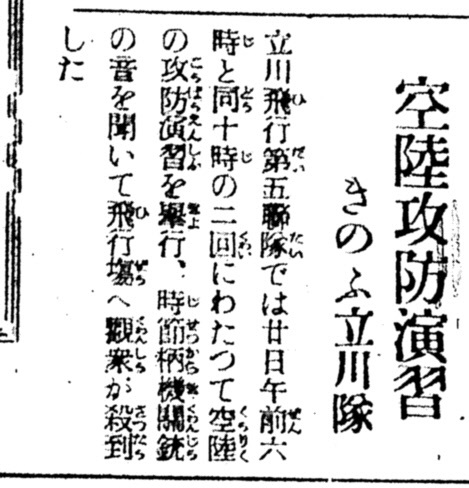 空陸攻防演習
きのふ立川隊
立川飛行第五聯隊では廿日午前六
時と同十時の二回にわたつて空陸
の攻防演習を擧行、時節柄機關銃
の音を聞いて飛行場へ觀衆が殺到
した